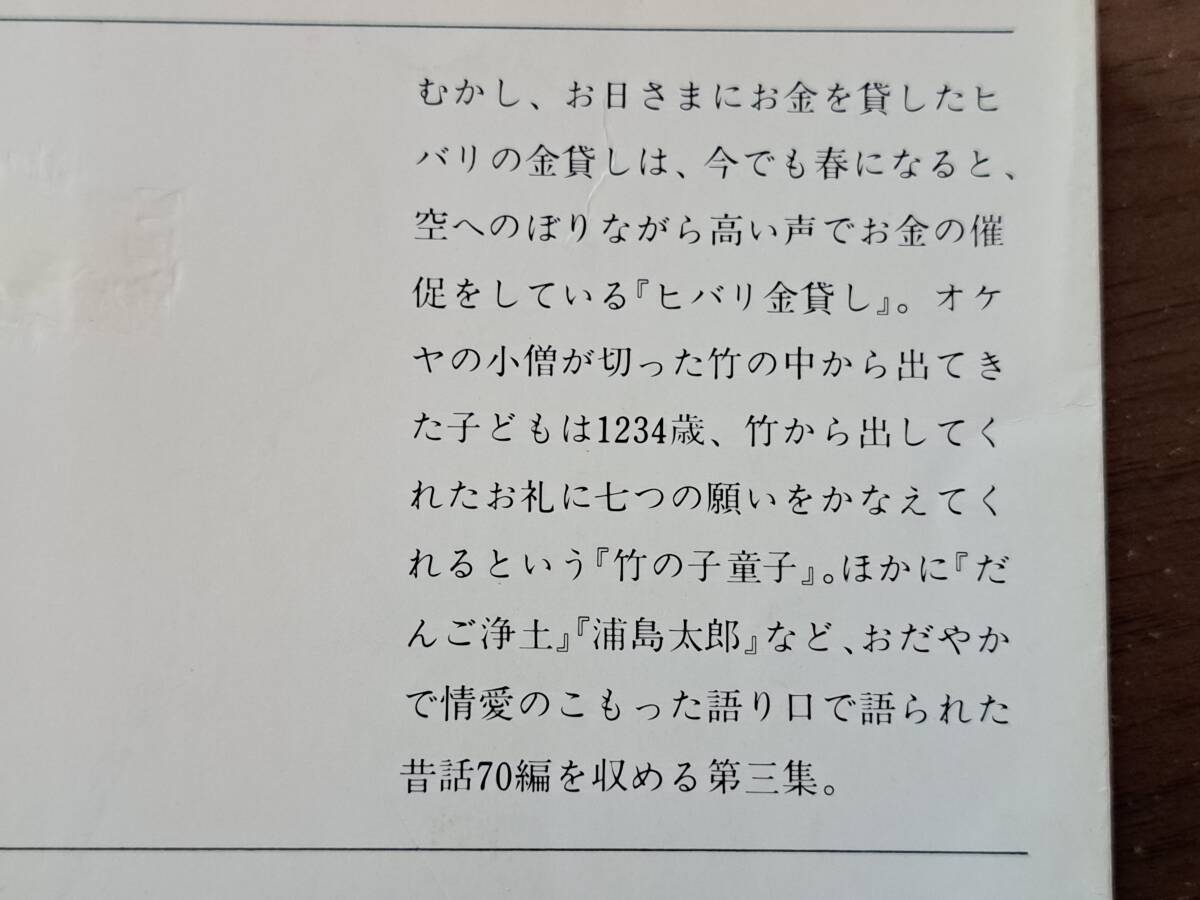 むかし、お日さまにお金を貸したヒ
バリの金貸しは、今でも春になると、
空へのぼりながら高い声でお金の催
促をしている『ヒバリ金貸し』。オケ
ヤの小僧が切った竹の中から出てき
た子どもは1234歳、竹から出してく
れたお礼に七つの願いをかなえてく
れるという『竹の子童子』。ほかに『だ
んご浄土』『浦島太郎』など、おだやか
で情愛のこもった語り口で語られた
昔話70編を収める第三集。